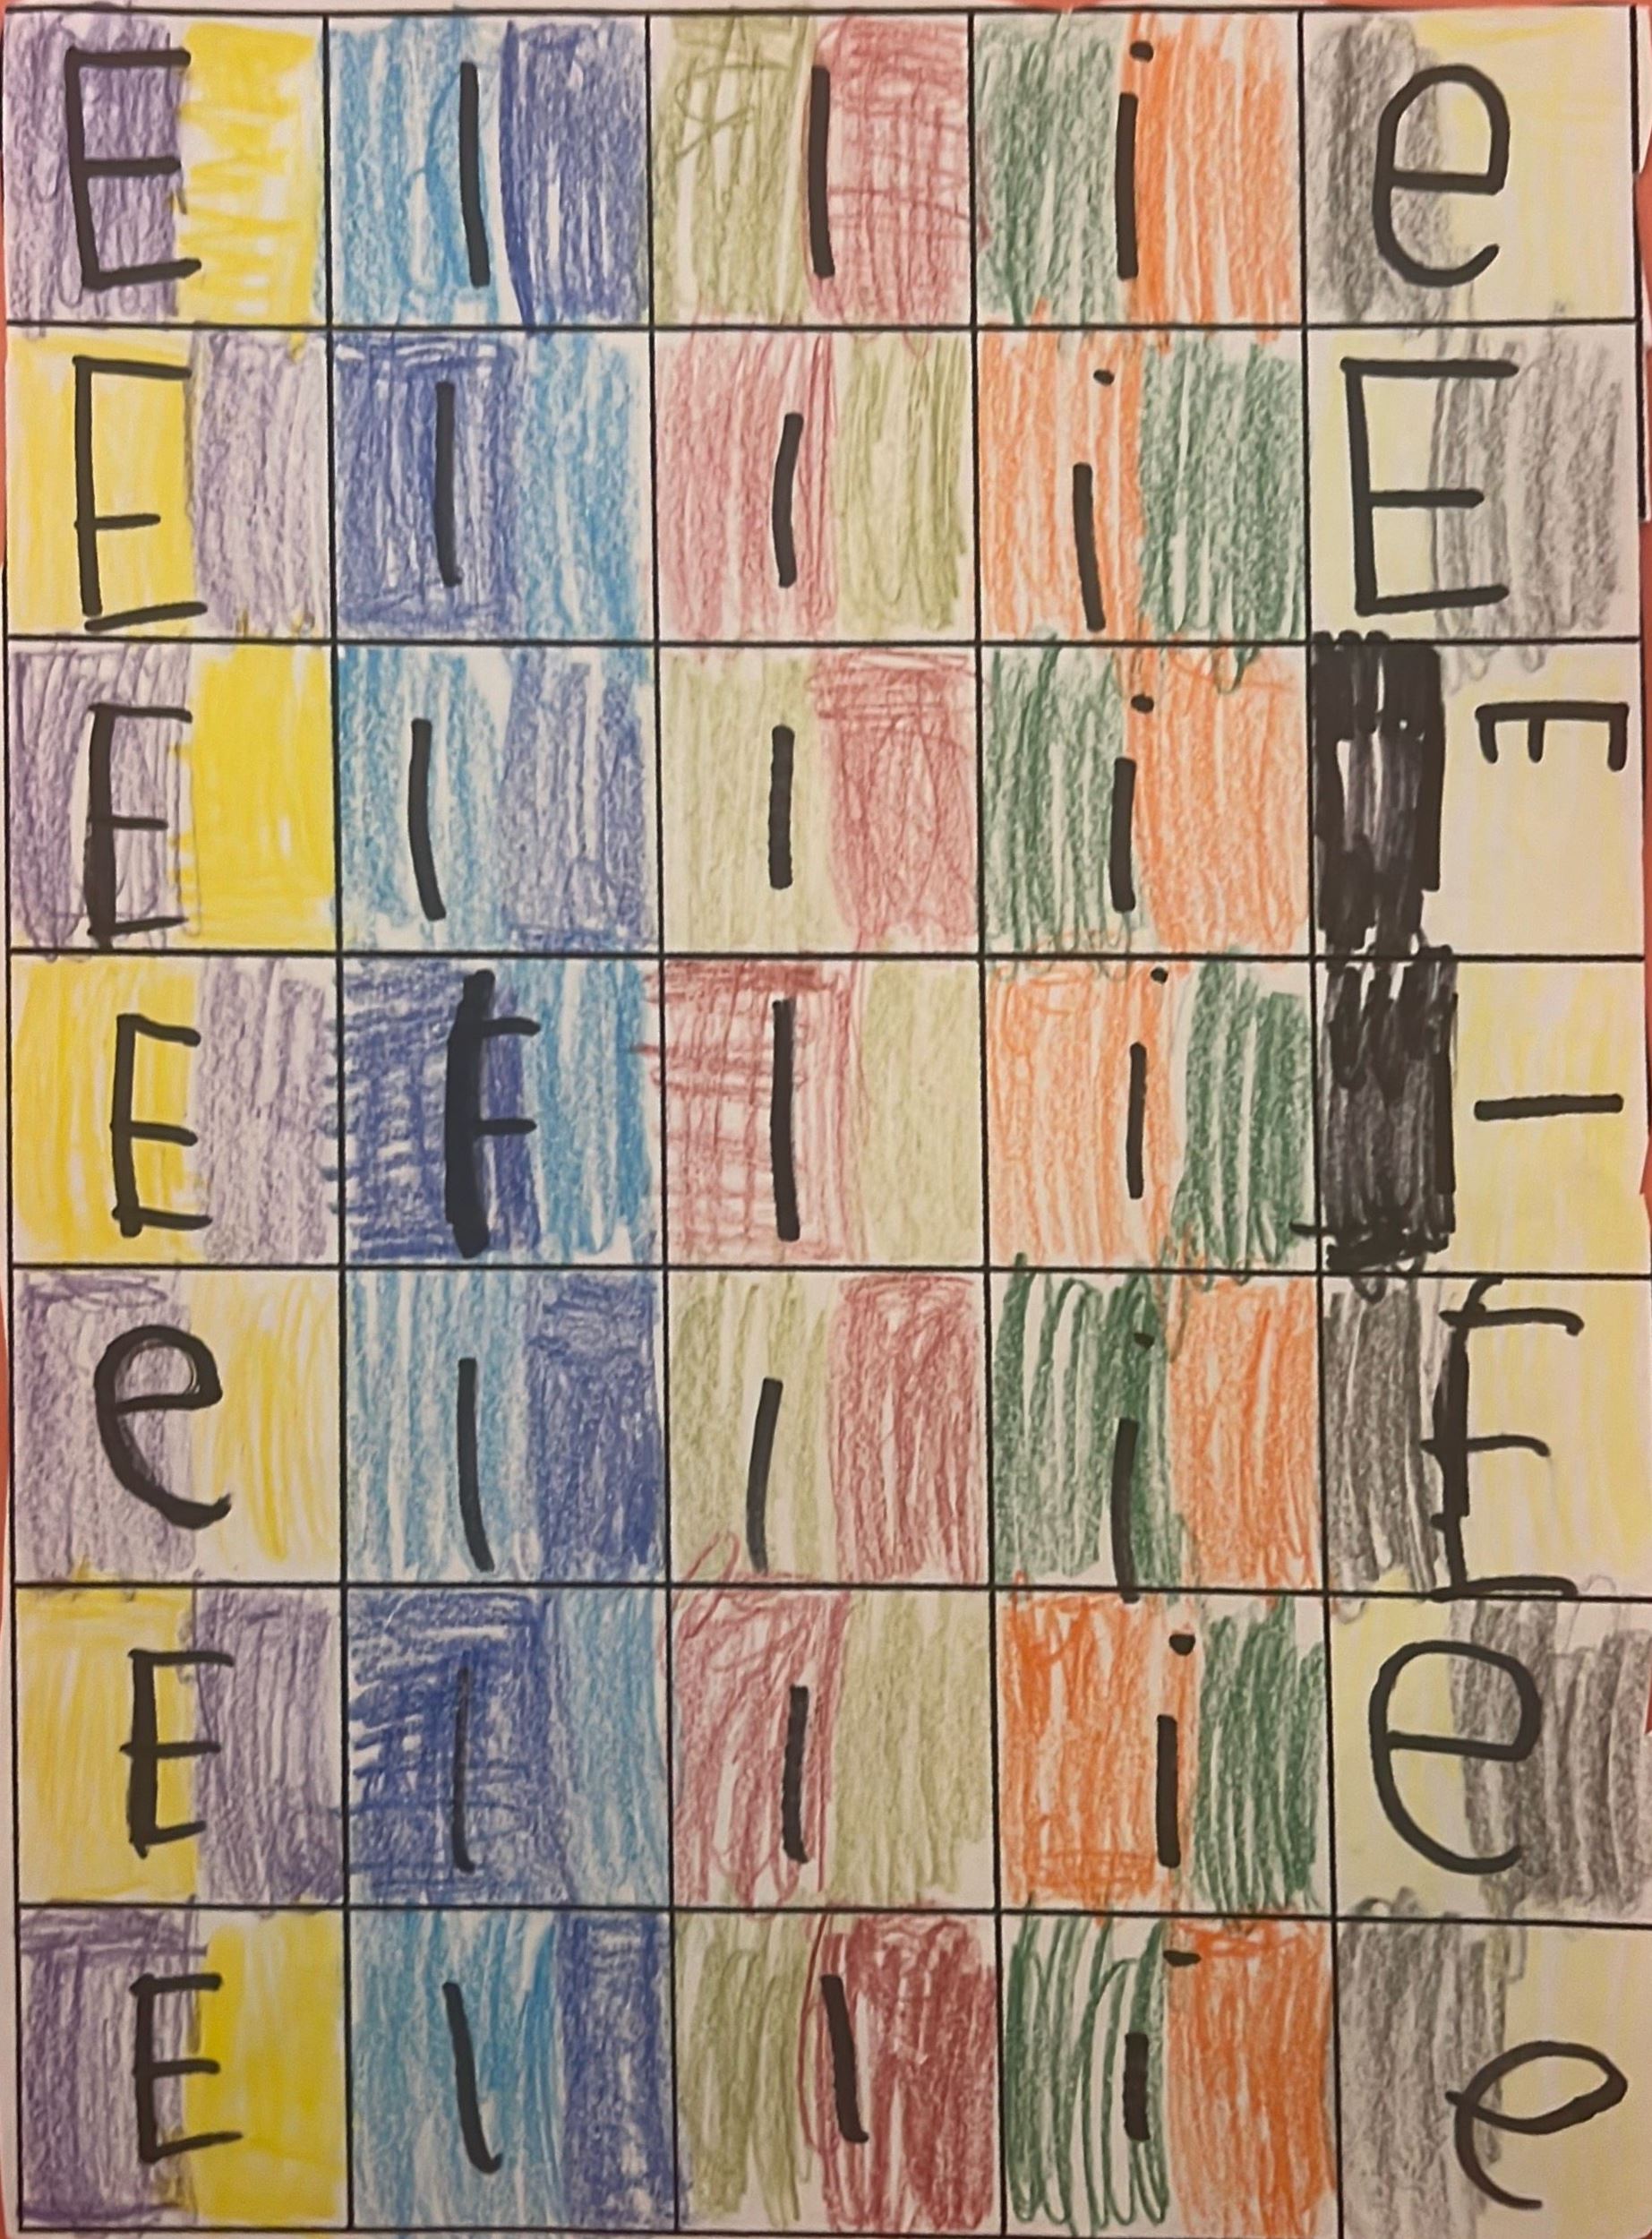 E l l i e
E l l i E
E l l i E
E F l i l
e l l i E
E l l i e
E l l i e